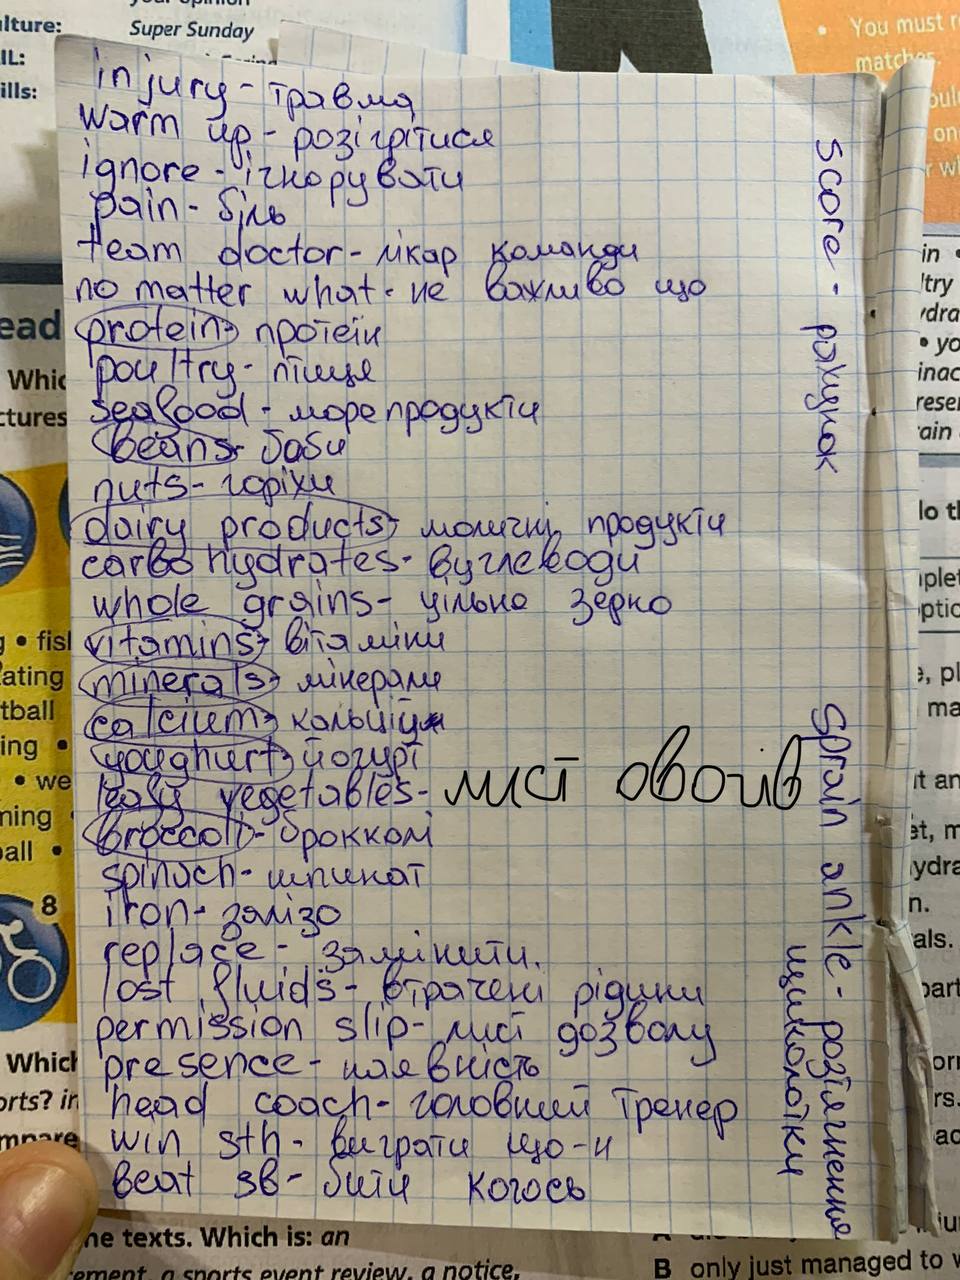 your opinion
ulture: Super Sunday
IL:
ills:
• You must r
matches.
injury - травма
warm up - розігрітися
ignore - ігнорувати
pain - біль
team doctor - лікар команди
no matter what - не важливо що
protein - протеїн
poultry - птиця
seafood - морепродукти
beans - боби
nuts - горіхи
dairy products - молочні продукти
carbohydrates - вуглеводи
whole grains - цільне зерно
vitamins - вітаміни
minerals - мінерали
calcium - кальцій
youghurt - йогурт
leafy vegetables - листі овочів
broccoli - брокколі
spinach - шпинат
iron - залізо
replace - замінити.
lost fluids - втрачені рідини
permission slip - лист дозволу
presence - наявність
head coach - головний тренер
win sth - виграти що-н
beat sb - бити когось
score - рахунок
sprain ankle - розтягнення
щиколотки
ead
Whic
ctures
• fisl
ating
tball
ing •
• we
ning
ball •
8
Which
orts? in
mpare
he texts. Which is: an
ement, a sports event review, a notice,
B only just managed to w